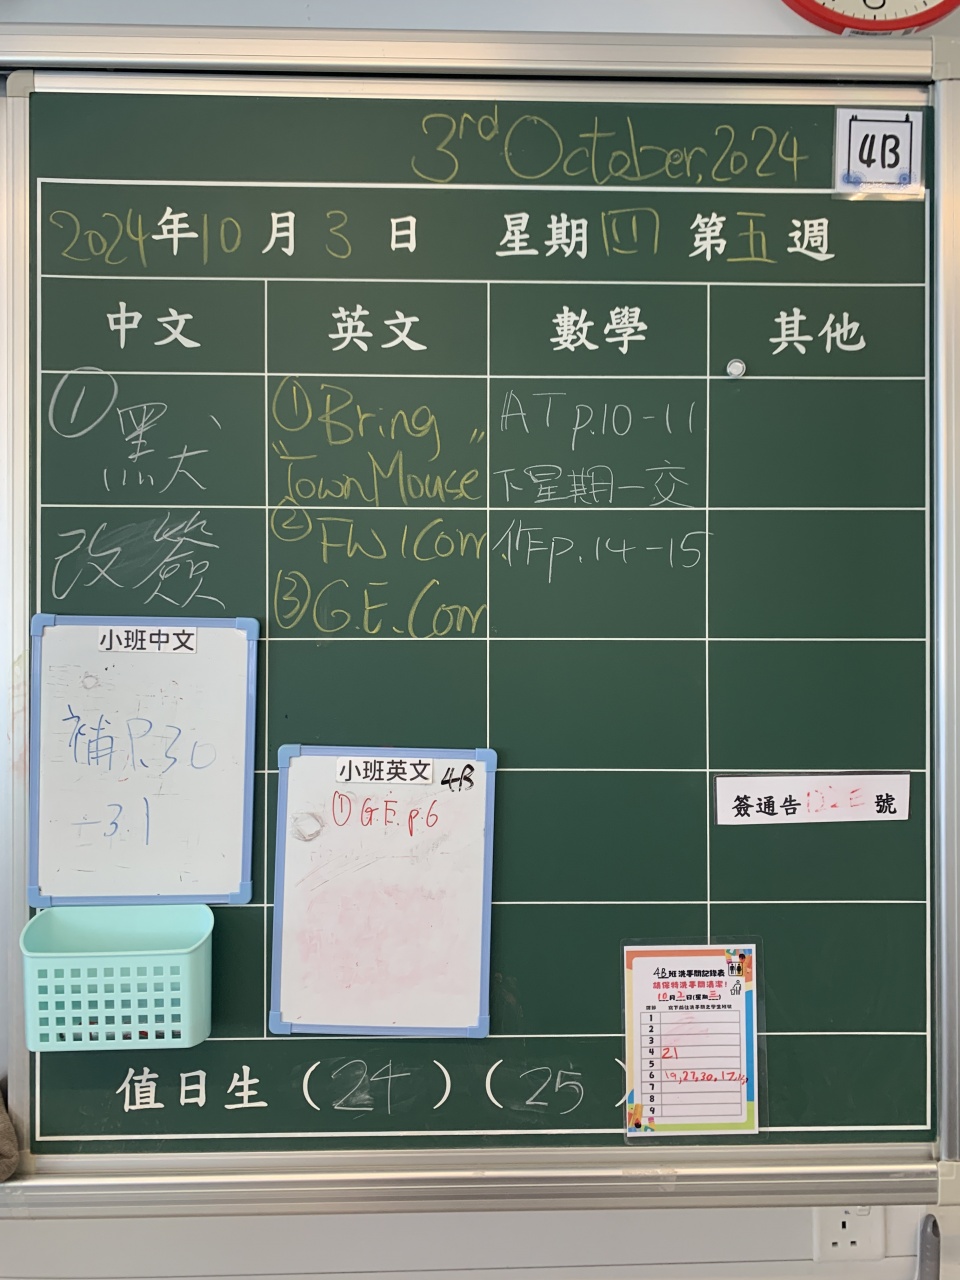 3rd October, 2024
4B
2024年10月3日 星期四 第五週
中文 英文 數學 其他
① 黑大
改簽
① Bring
"Town Mouse"
② FW1 Corr.
③ G.E. Corr
AT p.10-11
下星期一交
作 p.14-15
小班中文
補 P.30
-31
小班英文 4B
① G.E. p.6
簽通告 號
4B班洗手間記錄表
請保持洗手間清潔!
10月2日(星期三)
1
2
3
4 21
5
6 19,27,30,17
7
8
9
值日生(24)(25)